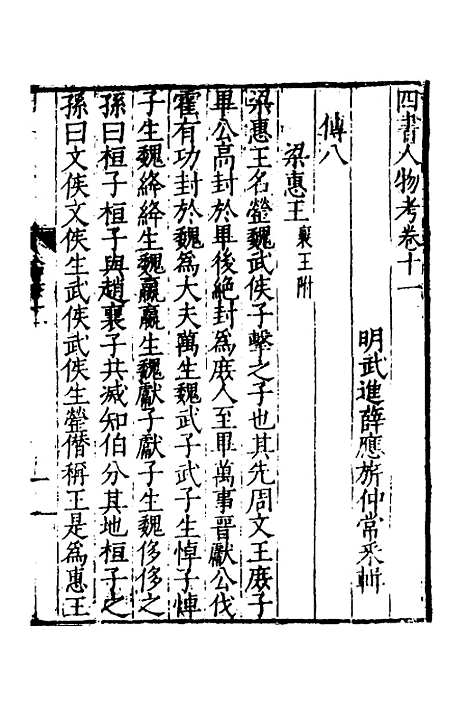 四書人物考卷十一
明武進薛應旂仲常采輯
傳八
梁惠王襄王附
梁惠王名罃魏武侯子擊之子也其先周文王庶子
畢公高封於畢後絕封爲庶人至畢萬事晉獻公伐
霍有功封於魏爲大夫萬生魏武子武子生悼子悼
子生魏絳絳生魏嬴嬴生魏獻子獻子生魏侈侈之
孫曰桓子桓子與趙襄子共滅知伯分其地桓子之
孫曰文侯文侯生武侯武侯生罃僭稱王是爲惠王